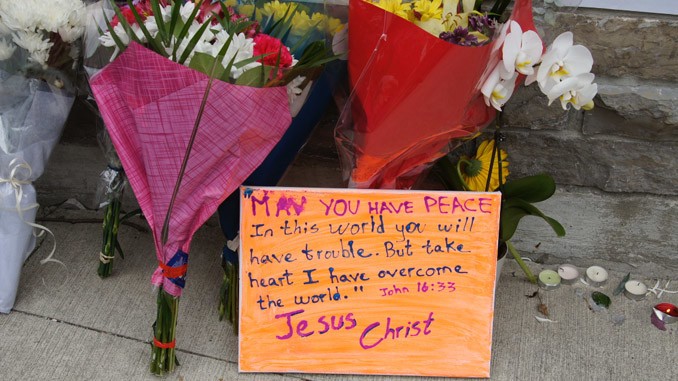 "MAY YOU HAVE PEACE
In this world you will
have trouble. But take
heart I have overcome
the world." John 16:33
Jesus Christ